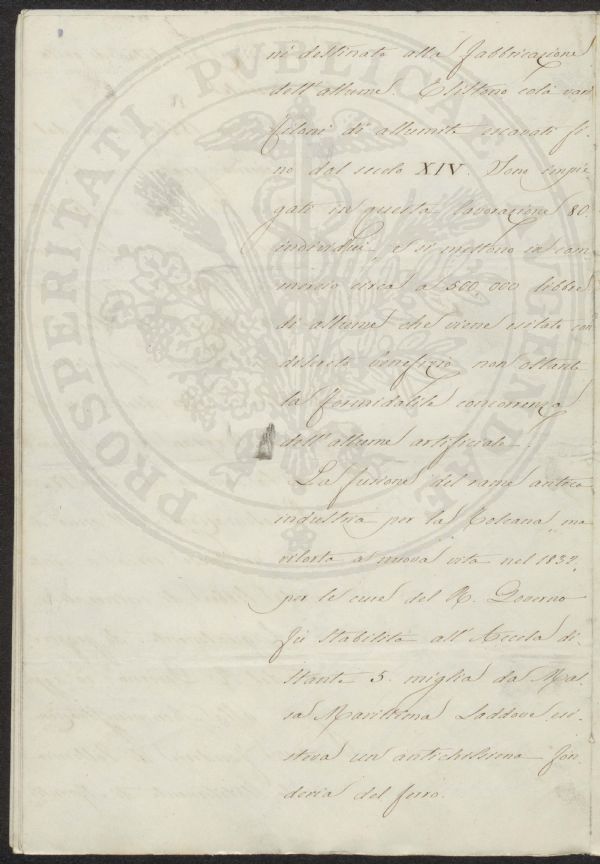 ni destinato alla fabbricazione
dell'allume. Esistono colà vari
filoni di allumite escavati fi-
no dal secolo XIV. Sono impie-
gati in questa lavorazione 80.
individui e si mettono in com-
mercio circa a 500,000 libbre
di allume che viene esitato con
discreto benefizio non ostante
la formidabile concorrenza
dell'allume artificiale.
La fusione del rame antica
industria per la Toscana, ma
risorta a nuova vita nel 1832,
per le cure del R. Governo
fu stabilita all'Accesa di-
stante 5. miglia da Mas-
sa Marittima laddove esi-
steva un antichissima fon-
deria del ferro.
PROSPERITATI PUBLICAE AUGENDAE